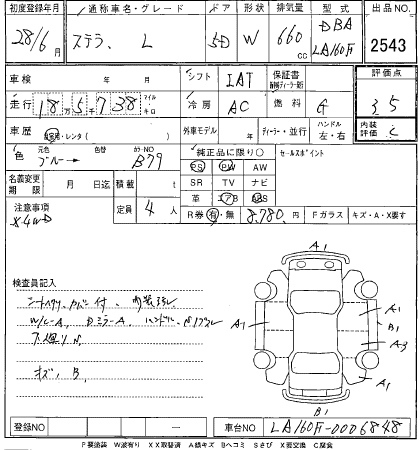 初度登録年月 通称車名・グレード ドア 形状 排気量 型式 出品NO.
28/6月 ステラ, L 5D W 660cc DBA LA160F 2543
車検 年 月 シフト IAT 保証書 評価点
走行 18万5千738 マイル・キロ 冷房 AC 燃料 G 3.5
車歴 自家用・レンタ 外車モデル ディーラー・並行 ハンドル 左・右 内装評価 C
色 元色 色替 カラーNO
ブルー→ B79
純正品に限り○ セールスポイント
PS PW AW
名義変更期限 月 日迄 積載 t SR TV ナビ
革 エアB ABS
注意事項 定員 4人 R券 有・無 8,780円 Fガラス キズ・A・X要す
※4WD
検査員記入
シートヘタリ,カバー付、内装汚れ
W/C-A, Dミラー-A, ハンドル
下廻りサ
オズ,B,
A1
A1 A1
B1
A3
A1
B1
登録NO ー 車台NO LA160F-0006848
P要塗装 W波有り XX取替済 A線キズ Bヘコミ Sさび X要交換 C腐食